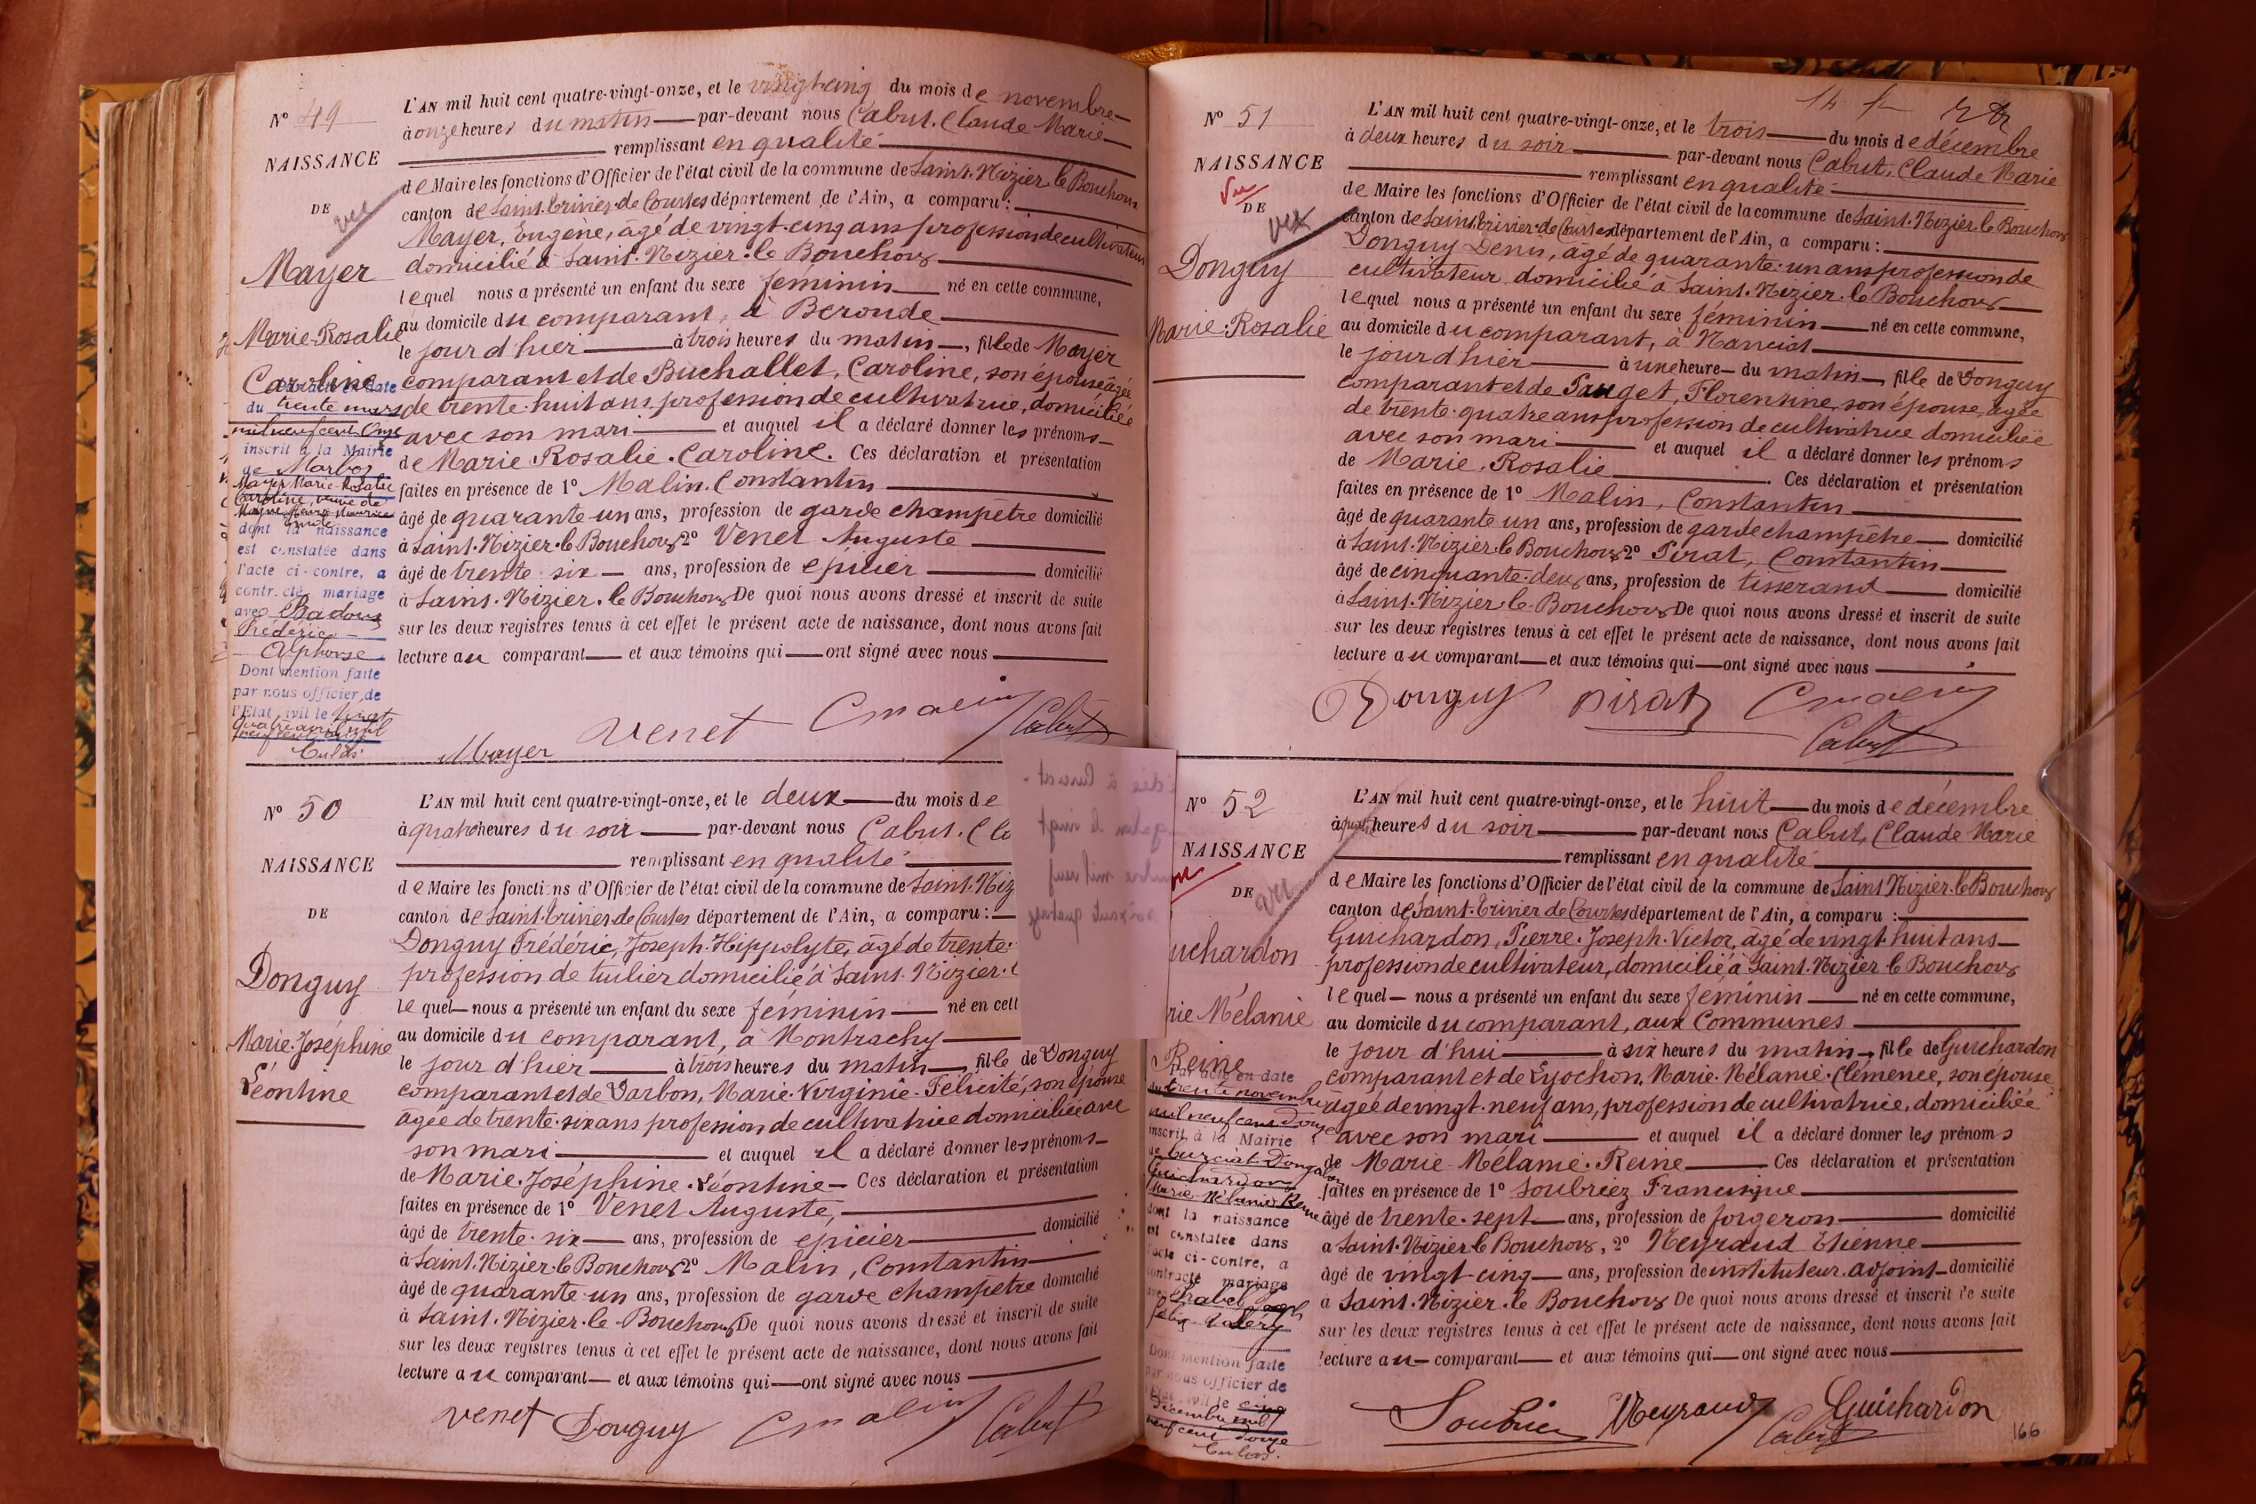 N° 49
NAISSANCE
DE
vu
Mayer
Marie-Rosalie
Caroline
du trente mars
mil neuf cent onze
inscrit à la Mairie
de Marboz
Mayer Marie-Rosalie
Caroline, veuve de
dont la naissance
est constatée dans
l'acte ci-contre, a
contracté mariage
avec Badoux
Frédéric
Alphonse
Dont mention faite
par nous officier de
l'Etat civil le vingt
quatre avril mil
L'AN mil huit cent quatre-vingt-onze, et le vingt-cinq du mois de novembre
à onze heures du matin par-devant nous Cabut, Claude Marie
remplissant en qualité
de Maire les fonctions d'Officier de l'état civil de la commune de Saint-Nizier-le-Bouchoux
canton de Saint-Trivier-de-Courtes département de l'Ain, a comparu :
Mayer, Eugène, âgé de vingt-cinq ans profession de cultivateur
domicilié à Saint-Nizier-le-Bouchoux
lequel nous a présenté un enfant du sexe féminin né en cette commune,
au domicile du comparant, à Beronde
le jour d'hier à trois heures du matin, fille de Mayer
comparant et de Buchallet, Caroline, son épouse âgée
de trente-huit ans profession de cultivatrice, domiciliée
avec son mari et auquel il a déclaré donner les prénoms
de Marie-Rosalie-Caroline. Ces déclaration et présentation
faites en présence de 1° Malin, Constantin
âgé de quarante-un ans, profession de garde champêtre domicilié
à Saint-Nizier-le-Bouchoux 2° Venet Auguste
âgé de trente-six ans, profession de épicier domicilié
à Saint-Nizier-le-Bouchoux De quoi nous avons dressé et inscrit de suite
sur les deux registres tenus à cet effet le présent acte de naissance, dont nous avons fait
lecture au comparant et aux témoins qui ont signé avec nous
Mayer Venet C malin Cabut
N° 50
NAISSANCE
DE
Donguy
Marie-Joséphine
Léontine
L'AN mil huit cent quatre-vingt-onze, et le deux du mois de
à quatre heures du soir par-devant nous Cabut, Cl
remplissant en qualité
de Maire les fonctions d'Officier de l'état civil de la commune de Saint-Niz
canton de Saint-Trivier-de-Courtes département de l'Ain, a comparu :
Donguy Frédéric, Joseph-Hippolyte, âgé de trente
profession de tuilier domicilié à Saint-Nizier-l
lequel nous a présenté un enfant du sexe féminin né en cett
au domicile du comparant, à Montrachy
le jour d'hier à trois heures du matin, fille de Donguy
comparant et de Varbon, Marie-Virginie-Félicité, son épouse
âgée de trente-six ans profession de cultivatrice domiciliée avec
son mari et auquel il a déclaré donner les prénoms
de Marie-Joséphine-Léontine Ces déclaration et présentation
faites en présence de 1° Venet Auguste,
âgé de trente-six ans, profession de épicier domicilié
à Saint-Nizier-le-Bouchoux 2° Malin, Constantin
âgé de quarante-un ans, profession de garde champêtre domicilié
à Saint-Nizier-le-Bouchoux De quoi nous avons dressé et inscrit de suite
sur les deux registres tenus à cet effet le présent acte de naissance, dont nous avons fait
lecture au comparant et aux témoins qui ont signé avec nous
Venet Donguy C malin Cabut
N° 51
NAISSANCE
Vu
DE
vu
Donguy
Marie-Rosalie
L'AN mil huit cent quatre-vingt-onze, et le trois du mois de décembre
à deux heures du soir par-devant nous Cabut, Claude Marie
remplissant en qualité
de Maire les fonctions d'Officier de l'état civil de la commune de Saint-Nizier-le-Bouchoux
canton de Saint-Trivier-de-Courtes département de l'Ain, a comparu :
Donguy Denis, âgé de quarante-un ans profession de
cultivateur domicilié à Saint-Nizier-le-Bouchoux
lequel nous a présenté un enfant du sexe féminin né en cette commune,
au domicile du comparant, à Nanciat
le jour d'hier à une heure du matin, fille de Donguy
comparant et de Pauget, Florentine, son épouse, âgée
de trente-quatre ans profession de cultivatrice domiciliée
avec son mari et auquel il a déclaré donner les prénoms
de Marie-Rosalie. Ces déclaration et présentation
faites en présence de 1° Malin, Constantin
âgé de quarante un ans, profession de garde champêtre domicilié
à Saint-Nizier-le-Bouchoux 2° Pirat, Constantin
âgé de cinquante-deux ans, profession de tisserand domicilié
à Saint-Nizier-le-Bouchoux De quoi nous avons dressé et inscrit de suite
sur les deux registres tenus à cet effet le présent acte de naissance, dont nous avons fait
lecture au comparant et aux témoins qui ont signé avec nous
Donguy Pirat C malin
Cabut
N° 52
NAISSANCE
DE
vu
uchardon
rie Mélanie
Reine
Par acte en date
du trente novembre
mil neuf cent douze
inscrit à la Mairie
de Curciat-Dongalon
Guichardon
Marie Mélanie Reine
dont la naissance
est constatée dans
l'acte ci-contre, a
contracté mariage
Dont mention faite
par nous officier de
l'Etat civil le cinq
Décembre mil
neuf cent douze
L'AN mil huit cent quatre-vingt-onze, et le huit du mois de décembre
à quatre heures du soir par-devant nous Cabut, Claude Marie
remplissant en qualité
de Maire les fonctions d'Officier de l'état civil de la commune de Saint-Nizier-le-Bouchoux
canton de Saint-Trivier-de-Courtes département de l'Ain, a comparu :
Guichardon, Pierre-Joseph-Victor, âgé de vingt-huit ans
profession de cultivateur, domicilié à Saint-Nizier-le-Bouchoux
lequel nous a présenté un enfant du sexe féminin né en cette commune,
au domicile du comparant, aux Communes
le jour d'hui à six heures du matin, fille de Guichardon
comparant et de Lyochon, Marie-Mélanie-Clémence, son épouse
âgée de vingt-neuf ans, profession de cultivatrice, domiciliée
avec son mari et auquel il a déclaré donner les prénoms
de Marie-Mélanie-Reine Ces déclaration et présentation
faites en présence de 1° Soubriez Francisque
âgé de trente-sept ans, profession de forgeron domicilié
à Saint-Nizier-le-Bouchoux, 2° Neyraud Etienne
âgé de vingt-cinq ans, profession de instituteur-adjoint domicilié
à Saint-Nizier-le-Bouchoux De quoi nous avons dressé et inscrit de suite
sur les deux registres tenus à cet effet le présent acte de naissance, dont nous avons fait
lecture au comparant et aux témoins qui ont signé avec nous
Soubriez Neyraud Cabut Guichardon
166